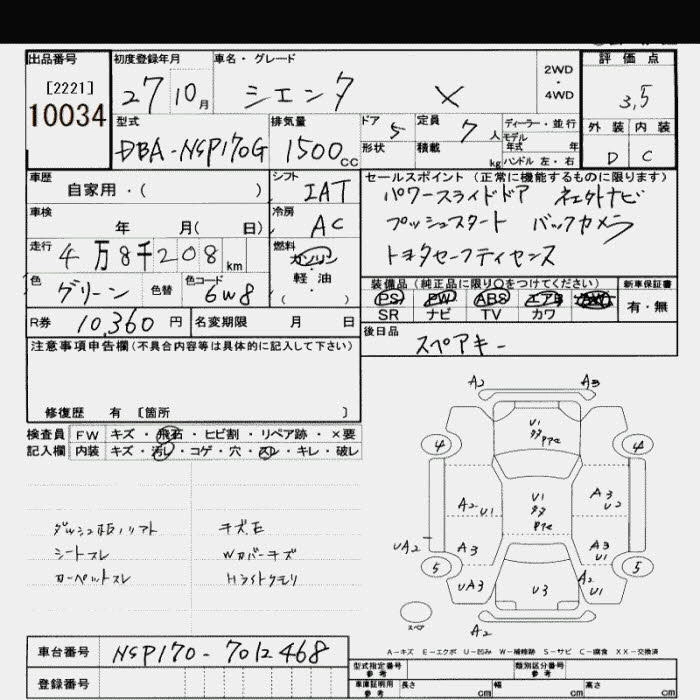 出品番号 初度登録年月 車名・グレード 評価点
[2221]
10034
27 10月 シエンタ X
2WD
・
4WD
3,5
型式 排気量 ドア 5 定員 7人 ディーラー・並行
モデル
年式 年
外装 内装
DBA-NSP170G 1500cc 形状 積載 kg ハンドル 左・右
D C
車歴 シフト セールスポイント (正常に機能するものに限ります)
自家用・( ) IAT
パワースライドドア
車検 冷房 プッシュスタート バックカメラ
年 月( 日) AC
走行 燃料 トヨタセーフティセンス
4万8千208km ガソリン
軽・油
( )
色 色替 色コード 装備品 (純正品に限り○をつけてください) 新車保証書
グリーン 6W8 PS PW ABS エアB
SR ナビ TV カワ 有・無
R券 10,360円 名変期限 月 日 後日品
スペアキー
注意事項申告欄(不具合内容等は具体的に記入して下さい)
修復歴 有 〔箇所 〕
検査員 FW キズ・飛石・ヒビ割・リペア跡・×要
記入欄 内装 キズ・汚レ・コゲ・穴・スレ・キレ・破レ
A2 A3
4 4
U1
A2 U1 U1 A3 U2
UA2 A3 A3 U1
5 5
UA3 U3 A2 U1
スペア
A2
シートスレ Wカバーキズ
カーペットスレ Hライトクモリ
A-キズ E-エクボ U-凹み W-補修跡 S-サビ C-腐食 XX-交換済
車台番号 NSP170-7012468
型式指定番号
参考
類別区分番号
参考
登録番号 車庫証明用
参考
長さ cm 幅 cm 高さ cm